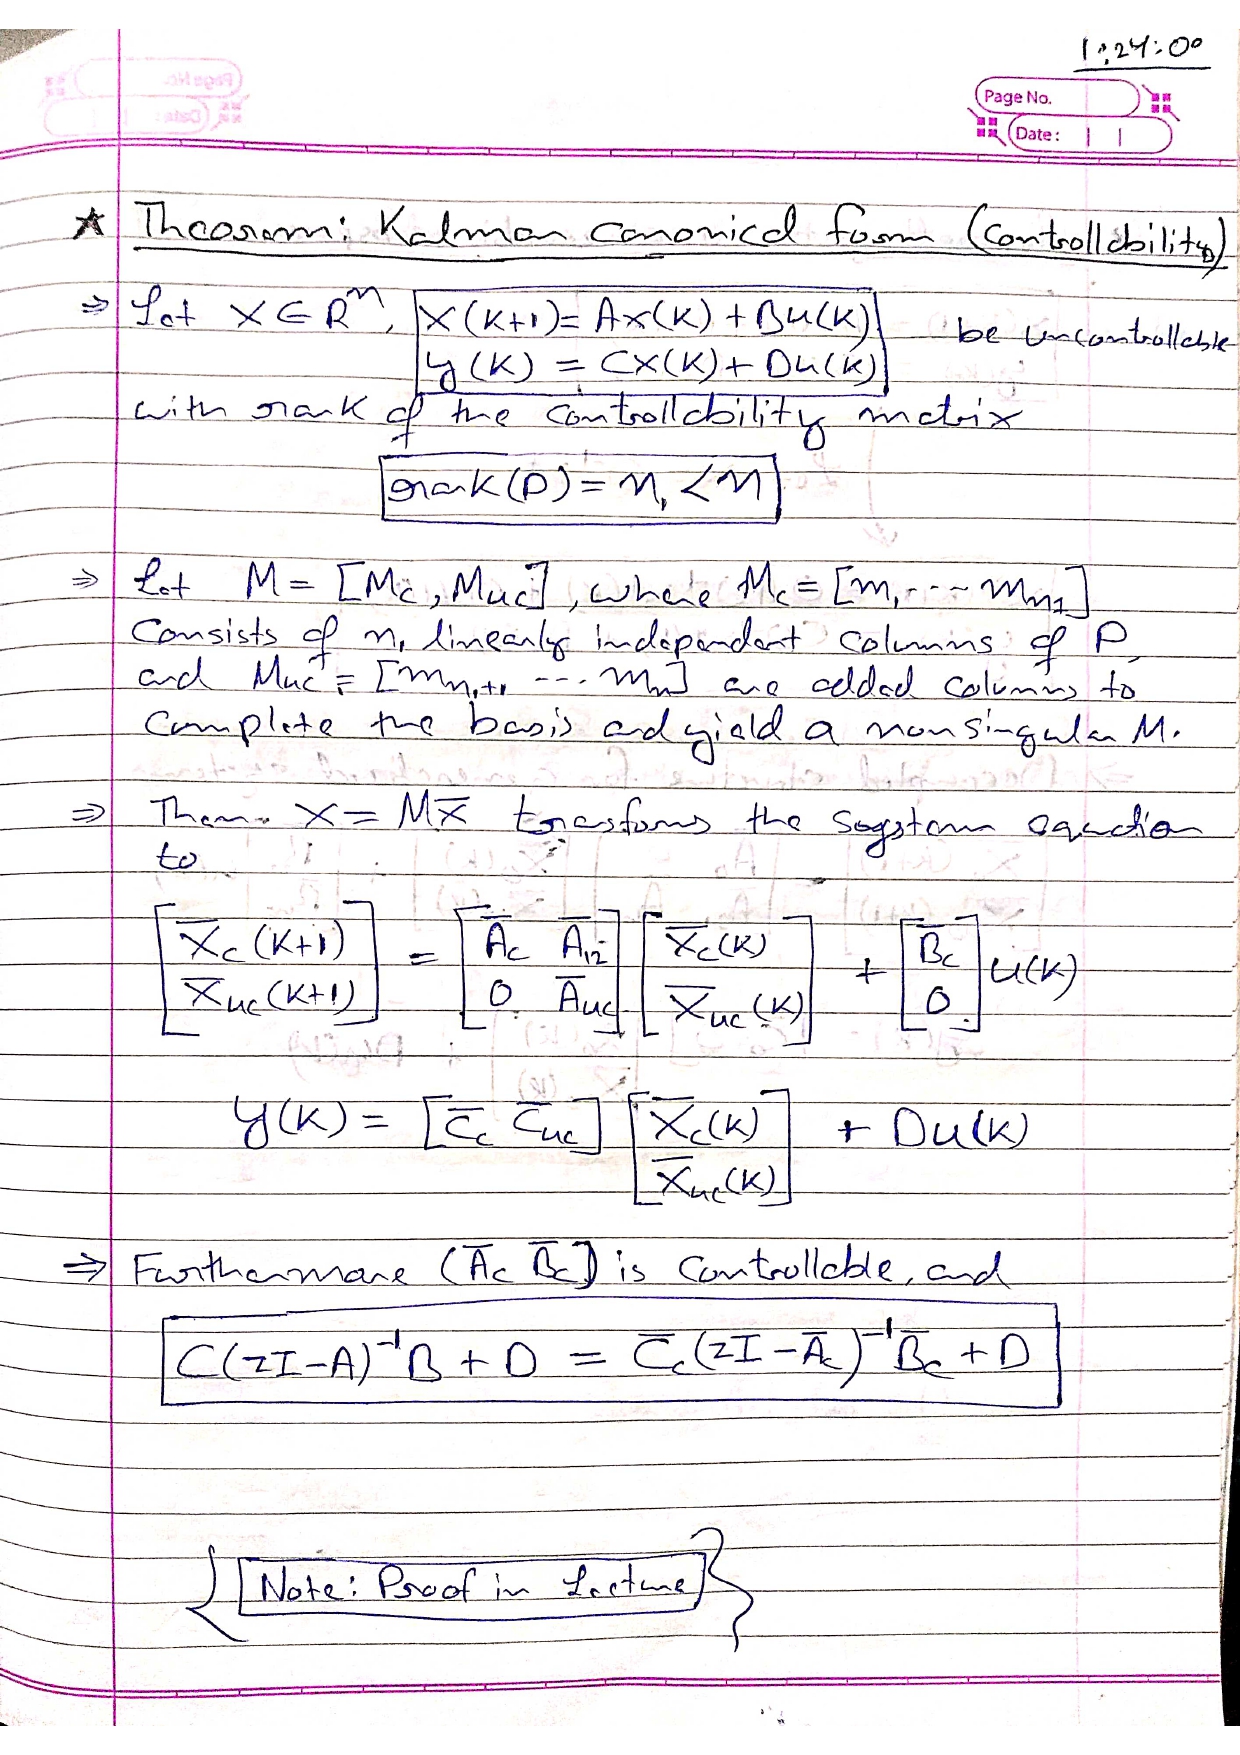 1:24:00
Page No.
Date:
★ Theorem: Kalman canonical form (Controllability)
⇒ Let x ∈ Rⁿ, x(k+1) = Ax(k) + Bu(k) be uncontrollable
y(k) = Cx(k) + Du(k)
with rank of the controllability matrix
rank(P) = n₁ < n
⇒ Let M = [Mc, Muc], where Mc = [m₁ --- mn1]
Consists of n₁ linearly independent columns of P,
and Muc = [mn₁+1 --- mn] are added columns to
complete the basis and yield a nonsingular M.
⇒ Then x = Mx̄ transforms the system equation
to
[x̄c(k+1)] = [Āc Ā12] [x̄c(k)] + [B̄c] u(k)
[x̄uc(k+1)] [0 Āuc] [x̄uc(k)] [0]
y(k) = [C̄c C̄uc] [x̄c(k)] + Du(k)
[x̄uc(k)]
⇒ Furthermore (Āc B̄c) is Controllable, and
C(zI-A)⁻¹B + D = C̄c(zI-Āc)⁻¹B̄c + D
{ Note: Proof in Lecture }